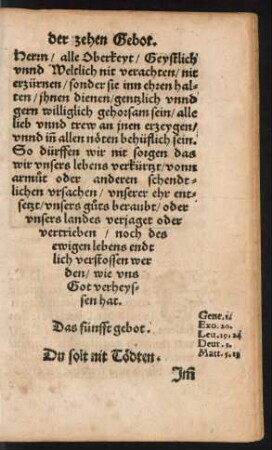 der zehen Gebot.
Herrn/ alle Oberkeyt/ Geystlich
vnnd Weltlich nit verachten/ nit
erzürnen/ sonder sie inn ehren hal-
ten/ jhnen dienen/ gentzlich vnnd
gern williglich gehorsam sein/ alle
lieb vnnd trew an jnen erzeygen/
vnnd in̄ allen nöten behüflich sein.
So dürffen wir nit sorgen das
wir vnsers lebens verkürtzt/ vonn
armůt oder anderen schendt-
lichen vrsachen/ vnserer ehr ent-
setzt/ vnsers gůts beraubt/ oder
vnsers landes verjaget oder
vertrieben/ noch des
ewigen lebens endt
lich verstossen wer
den/ wie vns
Got verheys-
sen hat.
Das fünfft gebot.
Du solt nit Tödten.
Gene.ii
Exo. 20.
Leu. 19. 24
Deut. 5.
Matt. 5. 18
Im̄